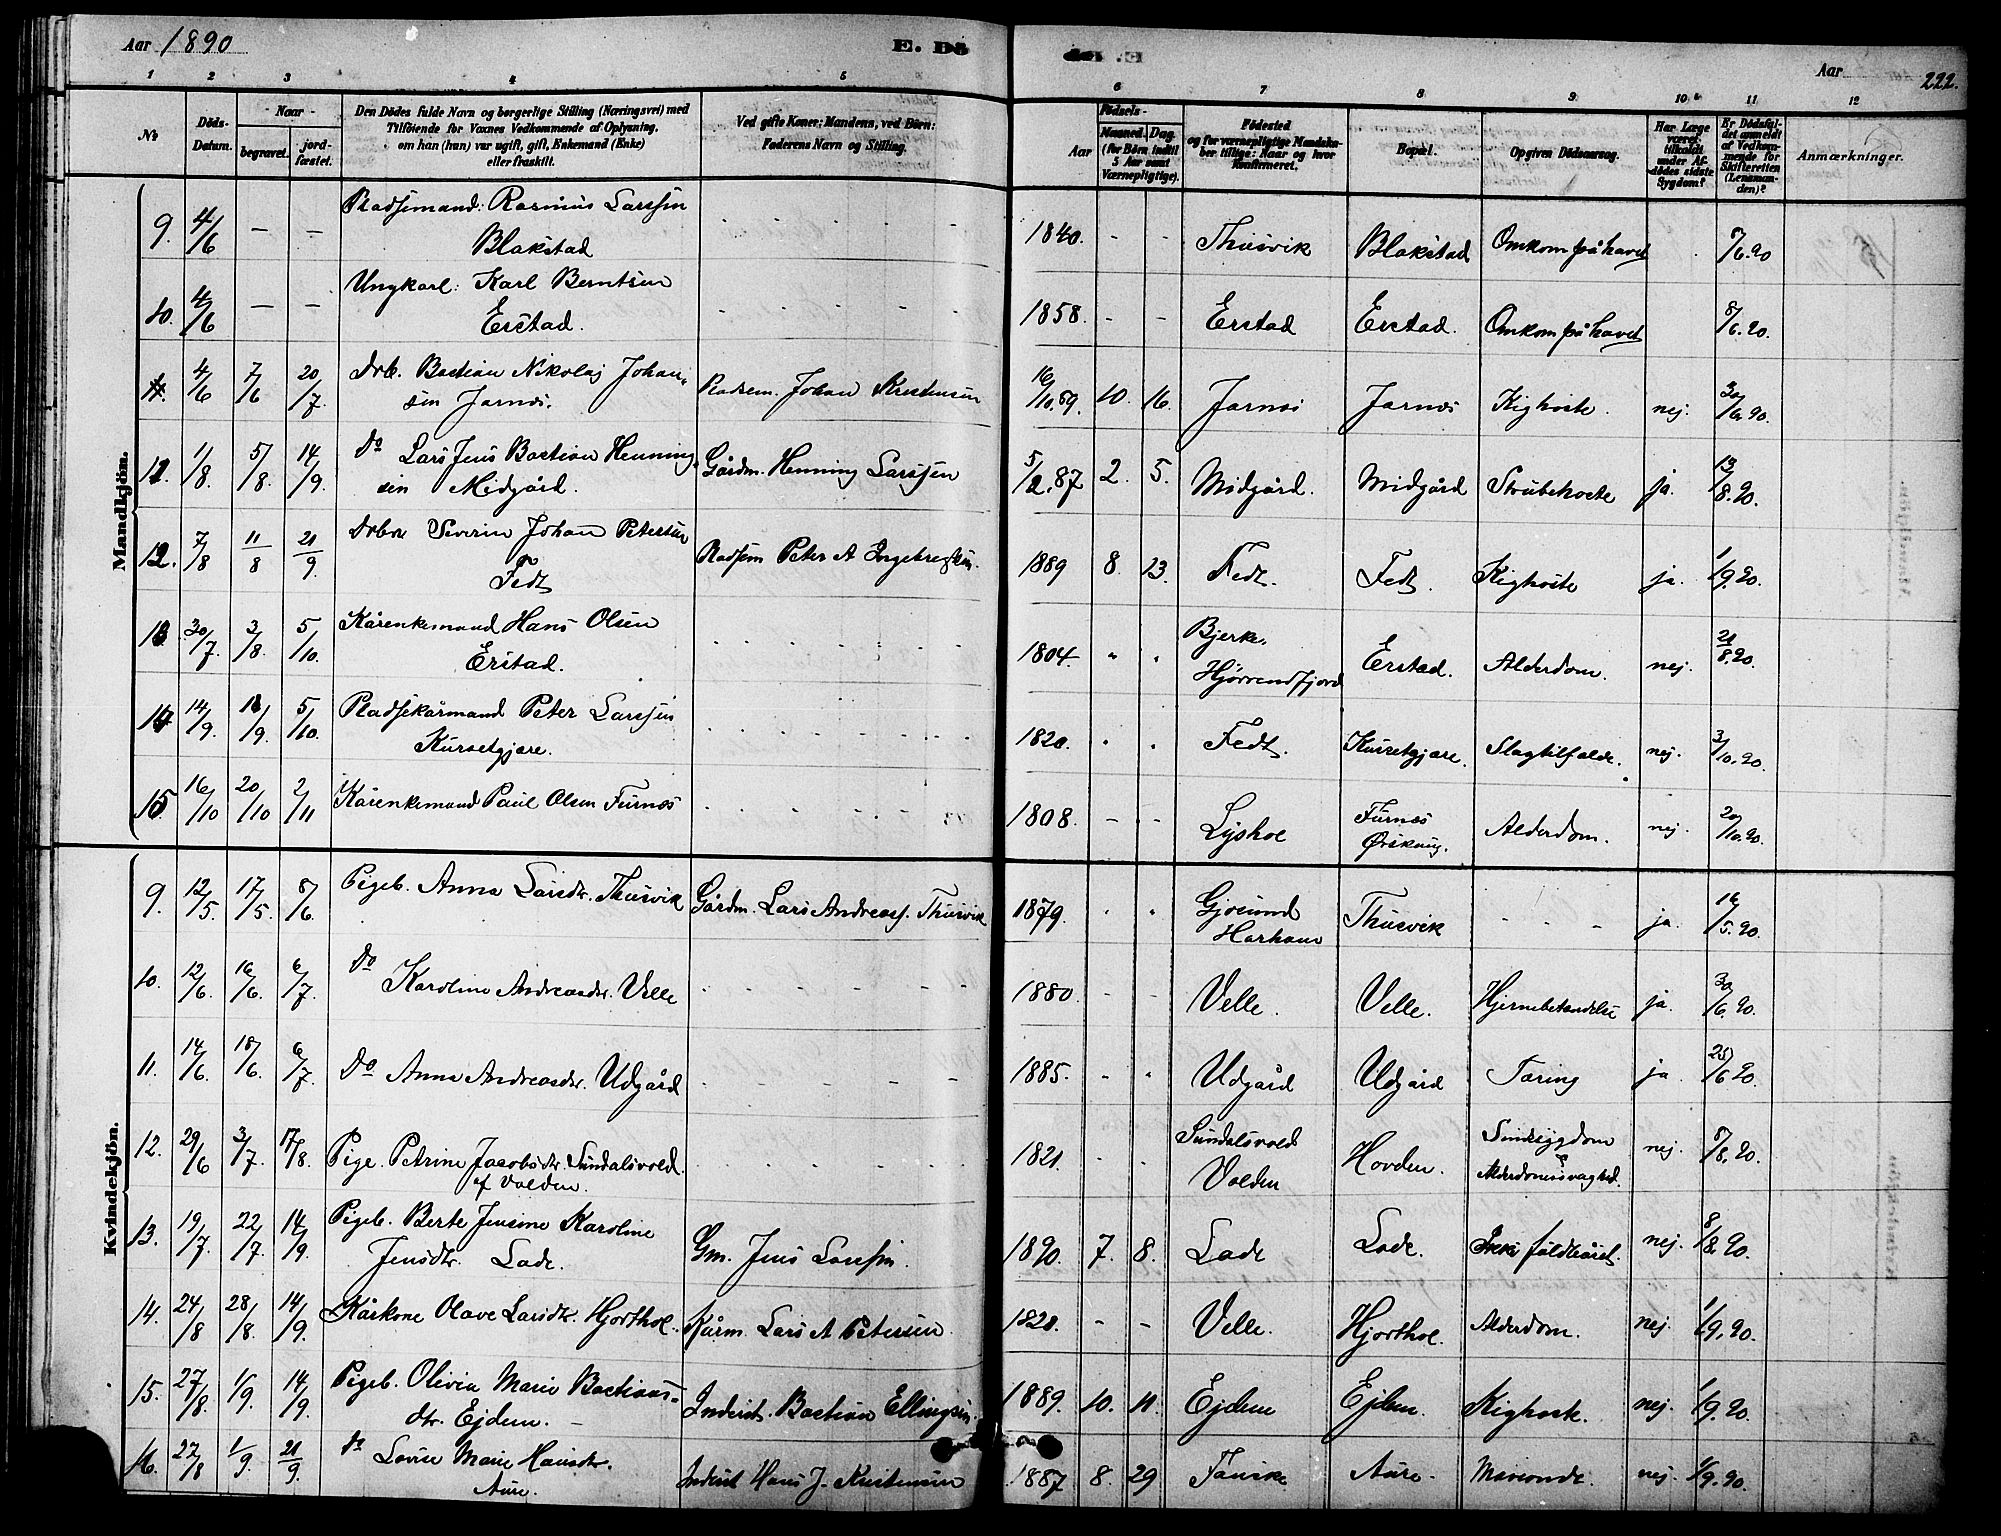 Aar 1890
E. Dö
Aar
222.
1 2 3 4 5 6 7 8 9 10 11 12
No
Döds-Datum.
Naar
begravet.
jordfæstet.
Den Dödes fulde Navn og borgerlige Stilling (Næringsvei) med
Tilföiende for Voxnes Vedkommende af Oplysning,
om han (hun) var ugift, gift, Enkemand (Enke)
eller fraskilt.
Ved gifte Koner: Mandens, ved Börn:
Faderens Navn og Stilling.
Födsels-
Aar
Maaned.
Dag.
(for Börn indtil
5 Aar samt
Værnepligtige).
Födested
og for værnepligtige Mandskaber tillige: Naar og hvor
Konfirmeret.
Bopæl.
Opgiven Dödsaarsag.
Har Læge
været
tilkaldt
under Afdödes sidste
Sygdom?
Er Dödsfaldet anmeldt
af Vedkommende for
Skifteretten
(Lensmanden)?
Anmærkninger.
Mandkjön.
9. 4/6 – – Pladsemand: Rasmus Larssen Blakstad 1840. - - Thusvik Blakstad Omkom på havet 7/6.90
10. 4/6 – – Ungkarl: Karl Berntsen Erstad. 1858. - - Erstad Erstad. Omkom på havet 8/6.90.
11. 4/6 7/6 20/7 Drb. Bastian Nikolaj Johansen Jarnes. Pladsem. Johan Kristensen 16/10.89. 10. 16. Jarnes Jarnes Kighoste. nej. 30/6.90.
11. 1/8. 5/8. 14/9. Do Lars Jens Bastian Henningsen Midgård. Gårdm. Henning Larssen 5/2.87 2. 5. Midgård. Midgård Strubehoste ja. 13/8.90.
12. 7/8 11/8 21/9. Drbn Severin Johan Petersen Fedt Pladsem Peter A Ingebregtsen. 1889 8. 23. Fedt. Fedt. Kighoste ja. 1/9.90.
13. 30/7. 3/8. 5/10. Kårenkemand Hans Olsen Erstad. 1804. " " Bjerke, Hjörrendfjord Erstad. Alderdom. nej. 21/8.90.
14. 14/9. 18/9. 5/10. Pladsekårmand Peter Larssen Kursetgjære. 1820. " " Fedt. Kursetgjære. Slagtilfælde. nej. 3/10.90.
15 16/10 20/10 2/11 Kårenkemand Paul Olsen Furnæs 1808. - - Lyshol Furnæs Ørskoug. Alderdom. nej. 20/10.90.
Kvindekjön.
9. 12/5. 17/5. 8/6. Pigeb. Anna Larsdtr. Thusvik Gårdm. Lars Andreass. Thusvik 1879. " " Gjøsund Harham Thusvik - - - ja. 16/5.90.
10. 12/6. 16/6. 6/7. Do Karoline Andreasdtr. Velle 1880. - - Velle. Velle. Hjernebetændelse ja. 30/6.90.
11. 14/6. 18/6. 6/7. Do Anna Andreasdtr. Udgård 1885. - " Udgård Udgård Tæring ja. 25/6 90.
12. 29/6 3/7. 17/8. Pige. Petrine Jacobsdtr. Sundalsvold af Volden. 1821. - - Sundalsvold Volden Hovden. Sindssygdom & Alderdomssvaghed. nej. 8/8.90.
13. 19/7. 22/7. 14/9. Pigeb. Berte Jensine Karoline Jensdtr. Lade. Gm. Jens Larssen. 1890. 7. 8. Lade Lade. Ikke fuldbåret. nej. 8/8.90.
14. 24/8 28/8. 14/9. Kårkone Olave Larsdtr. Hjorthol. Kårm. Lars A Petersen 1828. - - Velle. Hjorthol. Alderdom. nej. 1/9.90.
15. 27/8. 1/9. 14/9. Pigeb. Olivia Marie Bastiansdtr. Ejdem. Inderst. Bastian Ellingsen. 1889. 10. 11. Ejdem Ejdem. Kighoste. nej. 1/9.90.
16. 27/8 1/9. 21/9. do Lovise Marie Hansdtr. Aure. Inderst Hans J. Kristensen 1887 8. 29 Aure. nej. 1/9.90.